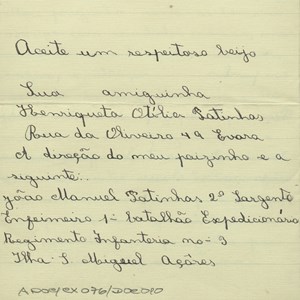 Aceite um respeitoso beijo
Sua amiguinha
Henriqueta Otília Patinhas
Rua da Oliveira 49 Evara
A direção do meu paizinho e a
siguinte..
João Manuel Patinhas 2º Sargento
Enfeimeiro 1º batalhão Expedicionário
Regimento Infanteria no-
Ilha S. Miguel Açôres